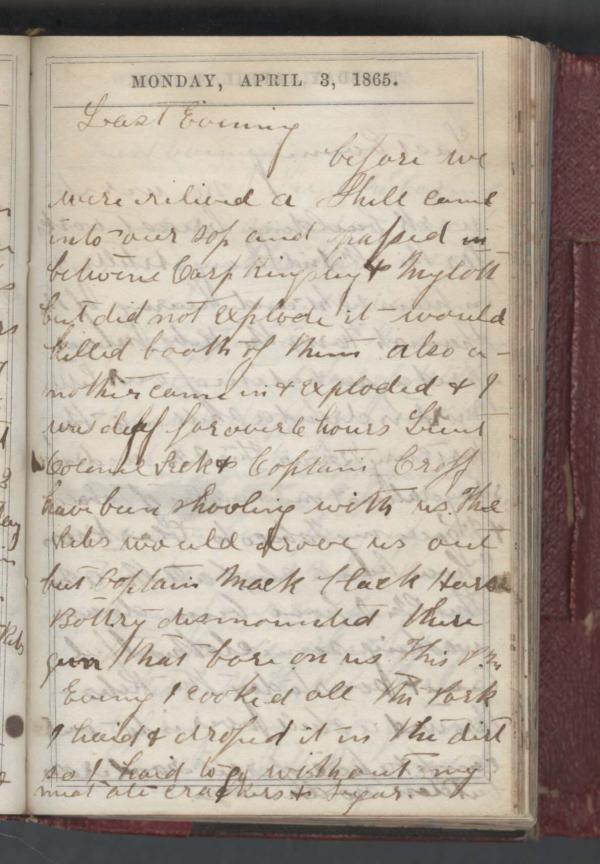 MONDAY, APRIL 3, 1865.
Last Evening
before we
were relievd a Shell came
into our sop and passed in
betwene Corp Kingsley &
but did not explode it would
killed booth of them also a-
nother came in & exploded & I
was deff for over 6 hours Lieut
Colonel Peck & Coptain Croff
have bun shooling with us The
Rebs would drove us out
but Coptain Mack black Horse
Bottry desmounted there
gun that bore on us This
Evning I cooked all The Pork
I haid & droped it in the dirt
so I haid to go without my
meat ate crackers & Sugar.